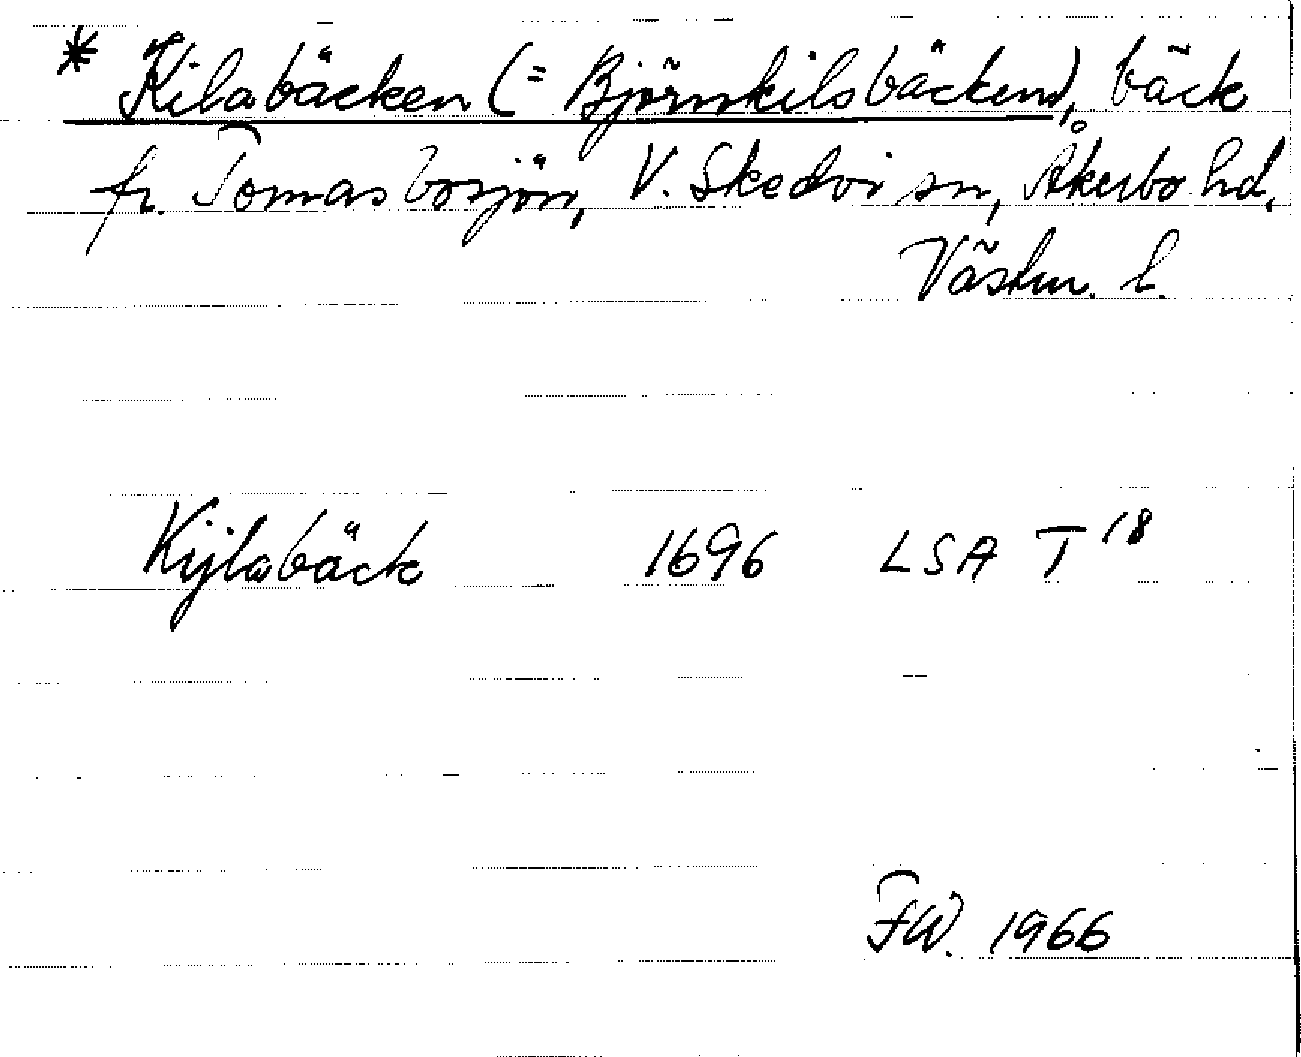 * Kilabäcken (= Björnkilsbäcken), bäck
fr. Tomasbosjön, V. Skedvi sn, Åkerbo hd,
Västm. l.
Kijlabäck 1696 LSA T 18
FW. 1966